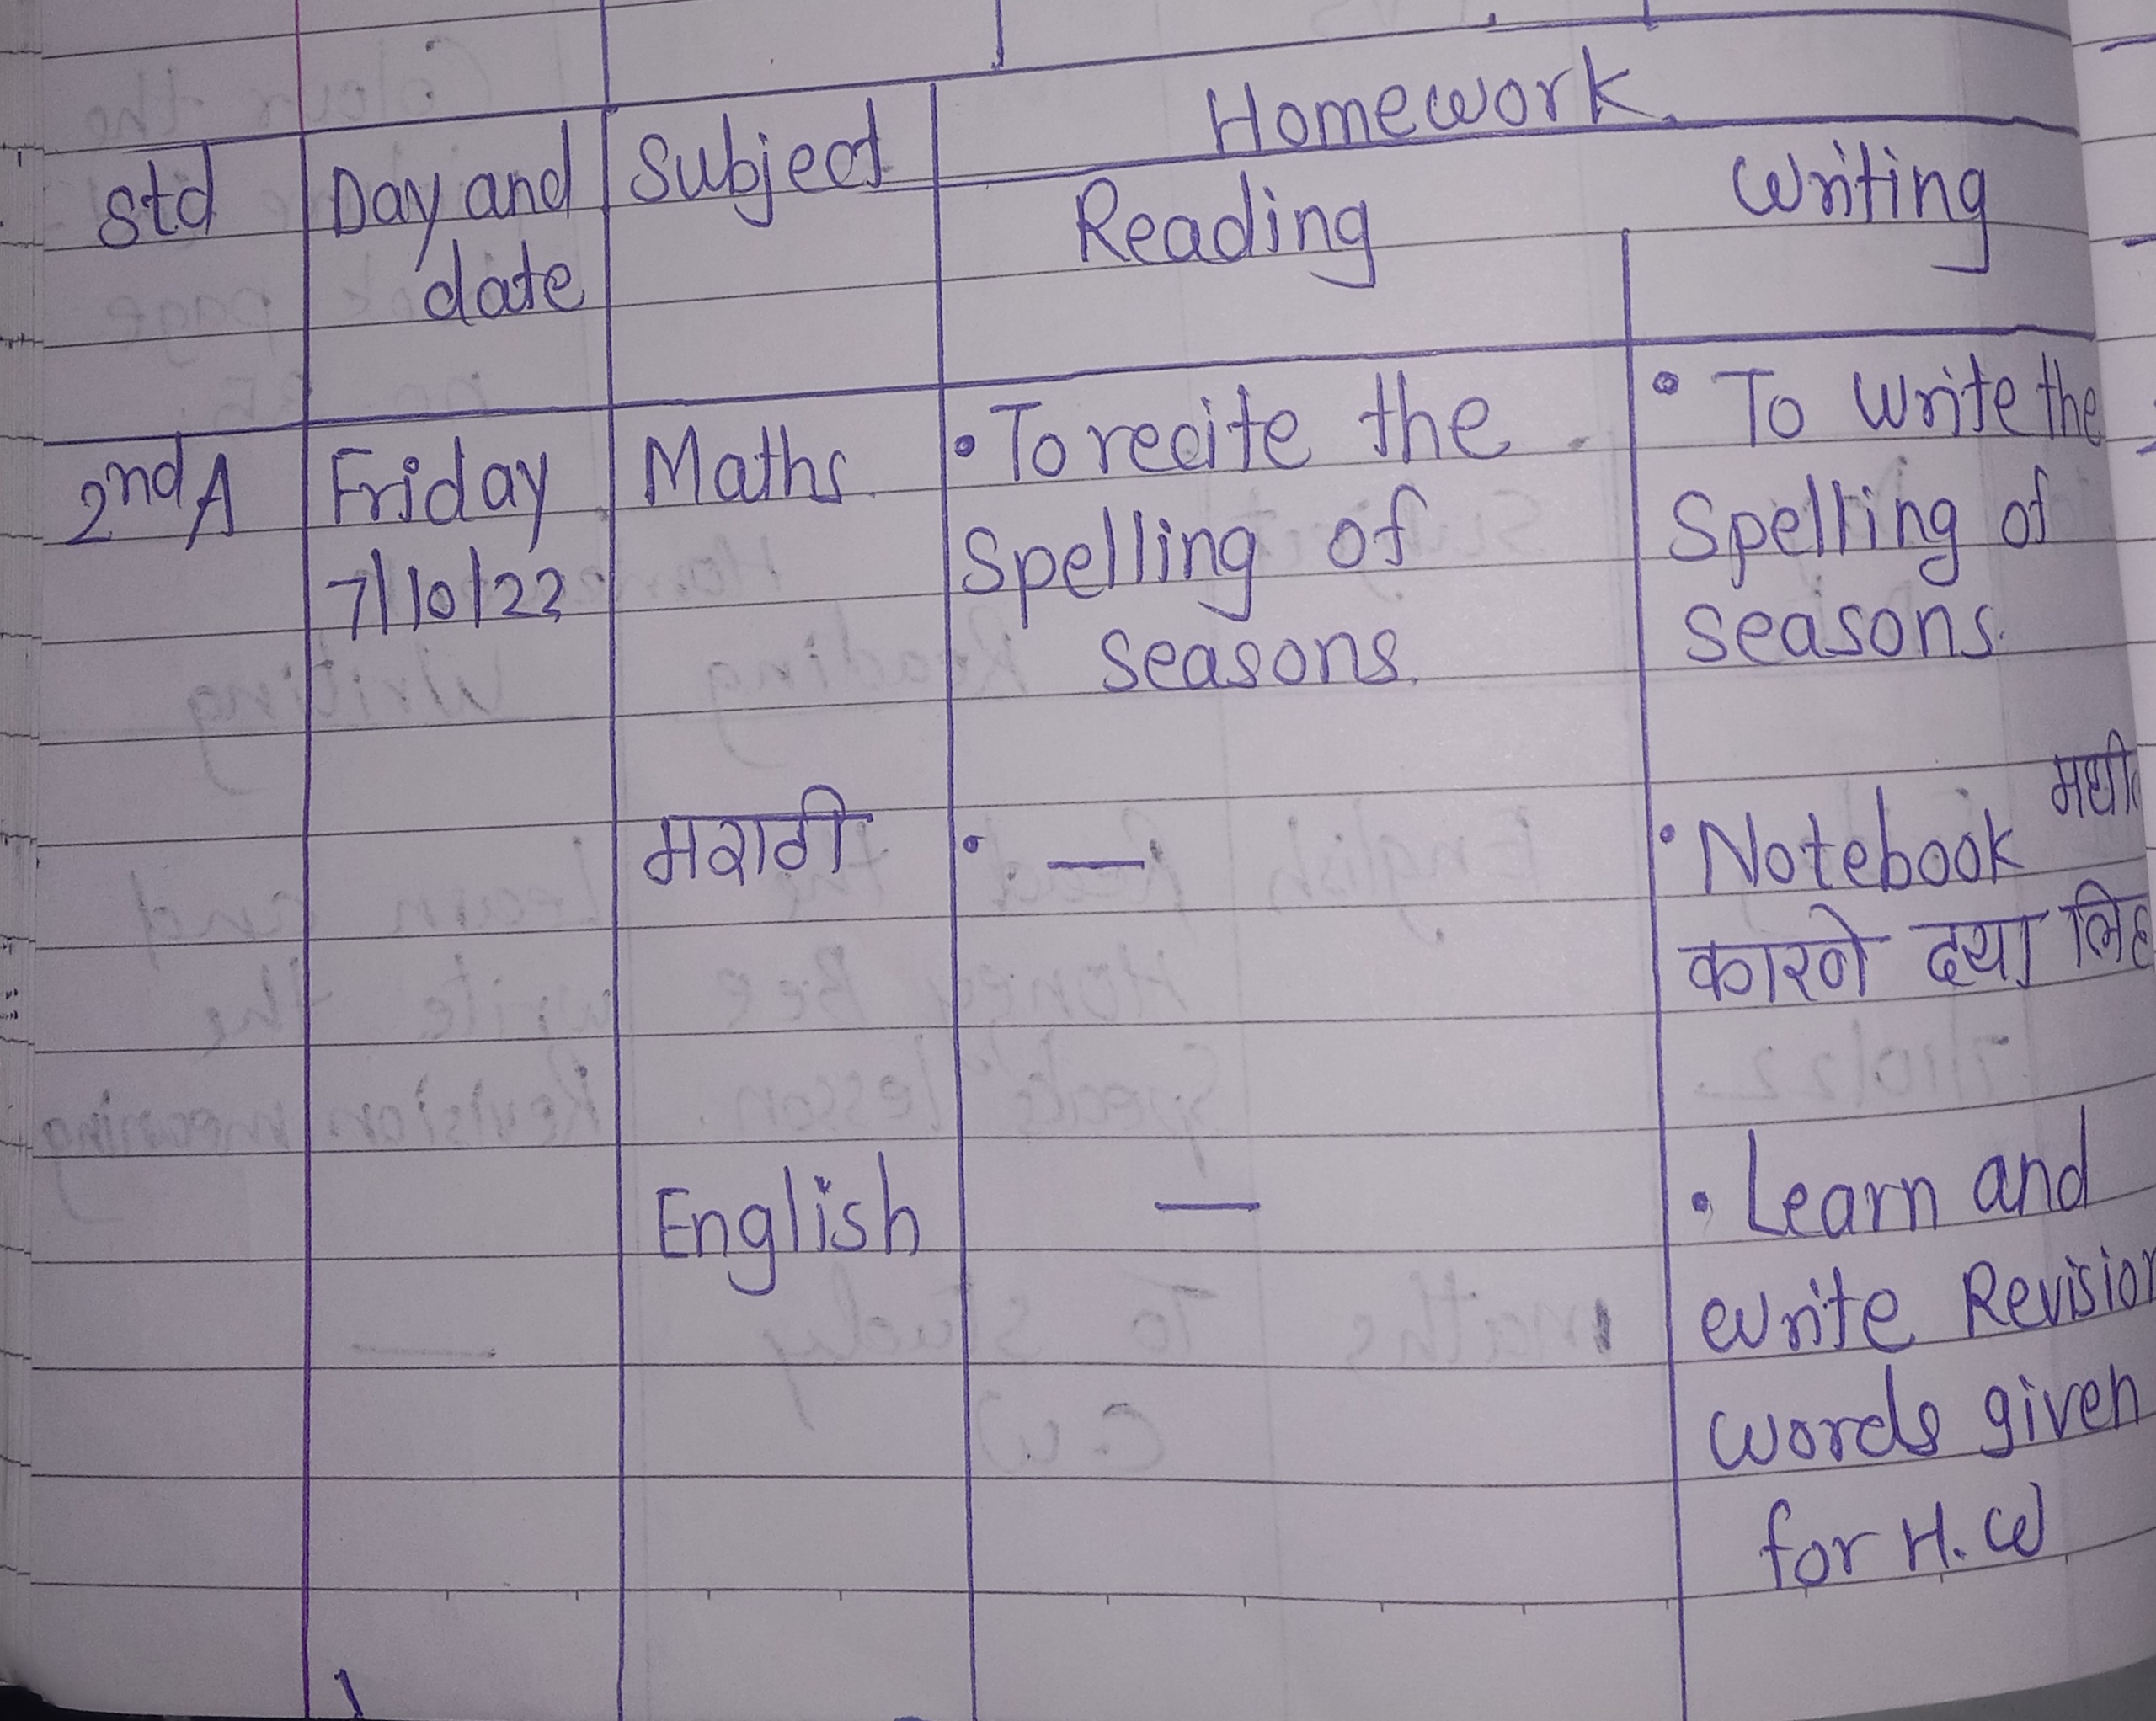 Homework.
std Day and Subject Reading Writing
date
2nd A Friday Maths. • To recite the • To write the
7/10/22 Spelling of Spelling of
seasons. seasons.
मराठी • — • Notebook
कारणे द्या
English — • Learn and
write Revision
words given
for H.W